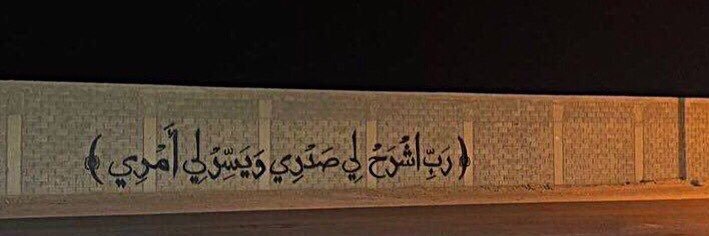 ﴿ رَبِّ اشْرَحْ لِي صَدْرِي وَيَسِّرْ لِي أَمْرِي ﴾